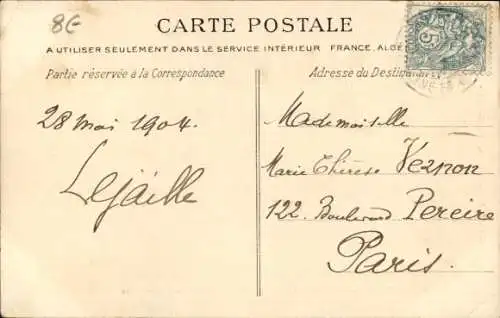 8€
CARTE POSTALE
A UTILISER SEULEMENT DANS LE SERVICE INTÉRIEUR FRANCE, ALGÉ
Partie réservée à la Correspondance
Adresse du Destinataire
28 mai 1904.
Lejaille
Mademoiselle
Marie Thérèse Veznon
122. Boulevard Pereire
Paris.
5